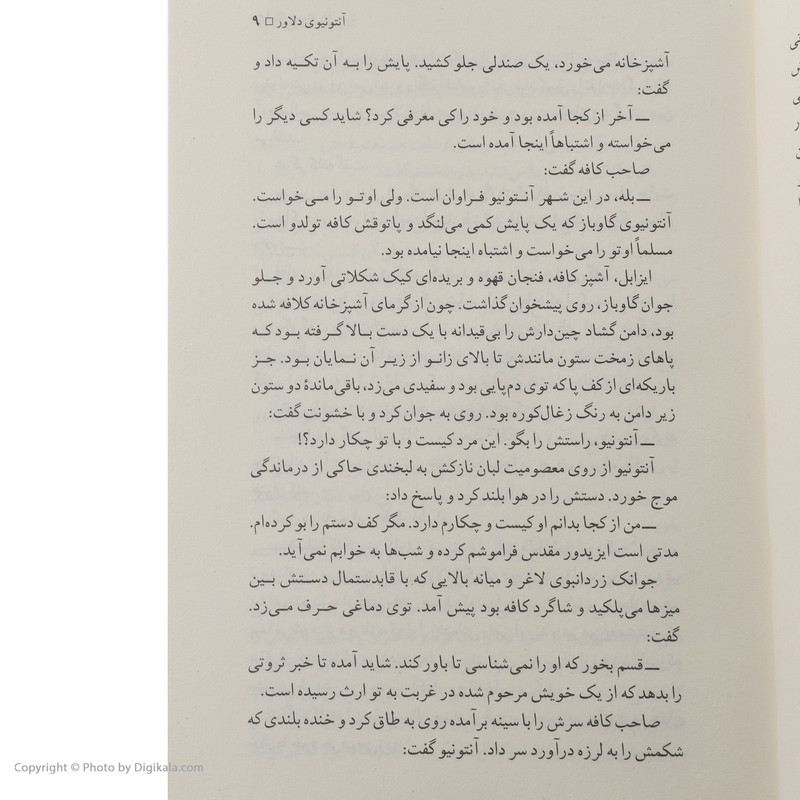 آنتونیوی دلاور □ ۹
آشپزخانه می‌خورد، یک صندلی جلو کشید. پایش را به آن تکیه داد و
گفت:
ــ آخر از کجا آمده بود و خود را کی معرفی کرد؟ شاید کسی دیگر را
می‌خواسته و اشتباهاً اینجا آمده است.
صاحب کافه گفت:
ــ بله، در این شهر آنتونیو فراوان است. ولی او تو را می‌خواست.
آنتونیوی گاوباز که یک پایش کمی می‌لنگد و پاتوقش کافه تولدو است.
مسلماً او تو را می‌خواست و اشتباه اینجا نیامده بود.
ایزابل، آشپز کافه، فنجان قهوه و بریده‌ای کیک شکلاتی آورد و جلو
جوان گاوباز، روی پیشخوان گذاشت. چون از گرمای آشپزخانه کلافه شده
بود، دامن گشاد چین‌دارش را بی‌قیدانه با یک دست بالا گرفته بود که
پاهای زمخت ستون مانندش تا بالای زانو از زیر آن نمایان بود. جز
باریکه‌ای از کف پا که توی دم‌پایی بود و سفیدی می‌زد، باقی‌ماندهٔ دو ستون
زیر دامن به رنگ زغال‌کوره بود. روی به جوان کرد و با خشونت گفت:
ــ آنتونیو، راستش را بگو. این مرد کیست و با تو چکار دارد؟!
آنتونیو از روی معصومیت لبان نازکش به لبخندی حاکی از درماندگی
موج خورد. دستش را در هوا بلند کرد و پاسخ داد:
ــ من از کجا بدانم او کیست و چکارم دارد. مگر کف دستم را بو کرده‌ام.
مدتی است ایزیدور مقدس فراموشم کرده و شب‌ها به خوابم نمی‌آید.
جوانک زردانبوی لاغر و میانه بالایی که با قابدستمال دستش بین
میزها می‌پلکید و شاگرد کافه بود پیش آمد. توی دماغی حرف می‌زد.
گفت:
ــ قسم بخور که او را نمی‌شناسی تا باور کند. شاید آمده تا خبر ثروتی
را بدهد که از یک خویش مرحوم شده در غربت به تو ارث رسیده است.
صاحب کافه سرش را با سینه برآمده روی به طاق کرد و خنده بلندی که
شکمش را به لرزه درآورد سر داد. آنتونیو گفت:
Copyright © Photo by Digikala.com